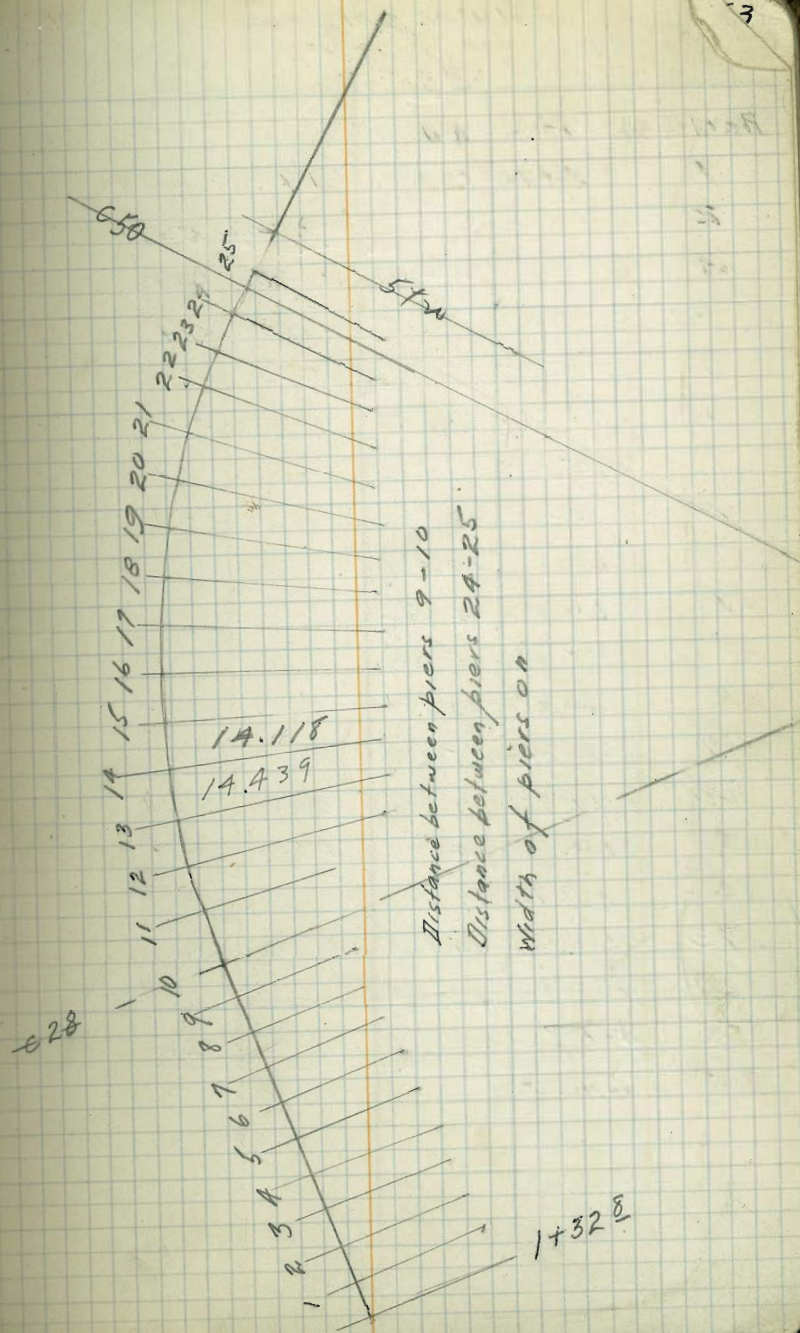 3
25
24
23
22
21
20
19
18
17
16
15
14
13
12
11
10
9
8
7
6
5
4
3
2
1
14.118
14.439
Distance between piers 9-10
Distance between piers 24-25
Width of piers on
1+32 8